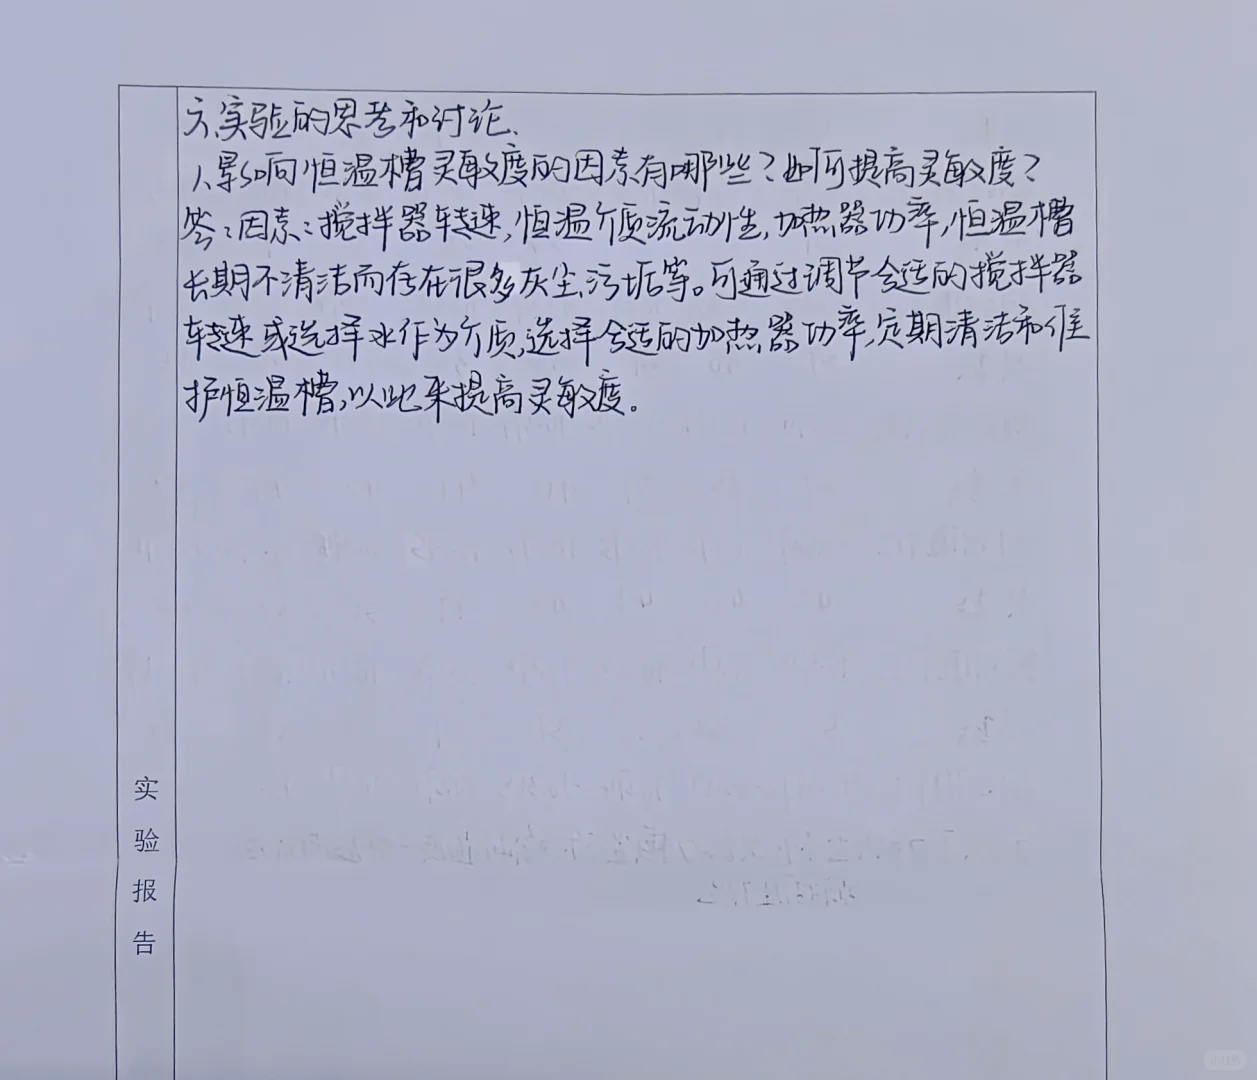 六、实验的思考和讨论、
1、影响恒温槽灵敏度的因素有哪些?如何提高灵敏度?
答:因素:搅拌器转速,恒温介质流动性,加热器功率,恒温槽
长期不清洁而存在很多灰尘、污垢等。可通过调节合适的搅拌器
转速或选择水作为介质,选择合适的加热器功率,定期清洁和维
护恒温槽,以此来提高灵敏度。
实
验
报
告